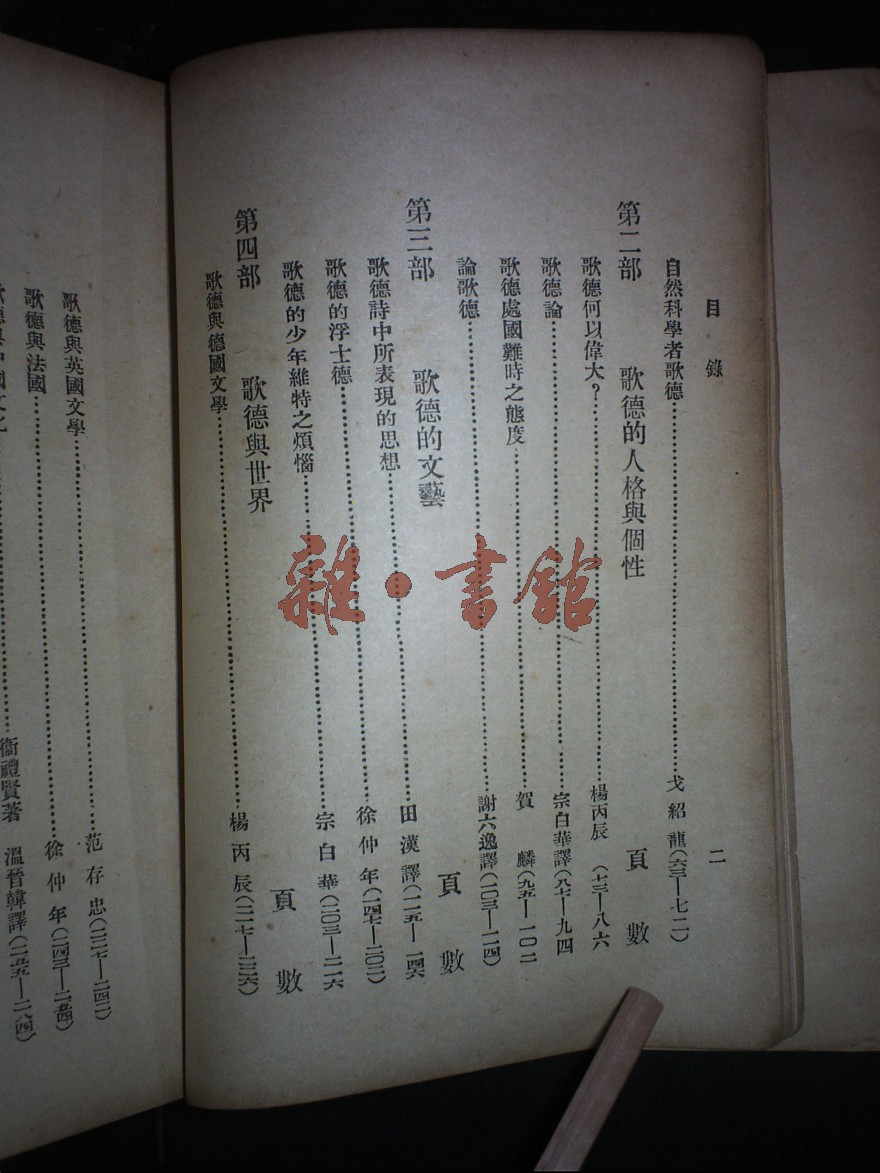 目錄
二
自然科學者歌德……戈紹龍(六三—七二)
第二部 歌德的人格與個性 頁數
歌德何以偉大?……楊丙辰(七三—八六
歌德論……宗白華譯(八七—九四
歌德處國難時之態度……賀麟(九五—一〇二
論歌德……謝六逸譯(一〇三—一二四)
第三部 歌德的文藝 頁數
歌德詩中所表現的思想……田漢譯(一二五—一四六
歌德的浮士德……徐仲年(一四七—二〇二)
歌德的少年維特之煩惱……宗白華(二〇三—二一六
第四部 歌德與世界 頁數
歌德與德國文學……楊丙辰(二一七—二二六)
歌德與英國文學……范存忠(二二七—二四二)
歌德與法國……徐仲年(二四三—二五四)
歌德與中國文化……衞禮賢著 溫晉韓譯(二五五—二八四)
雜·書館